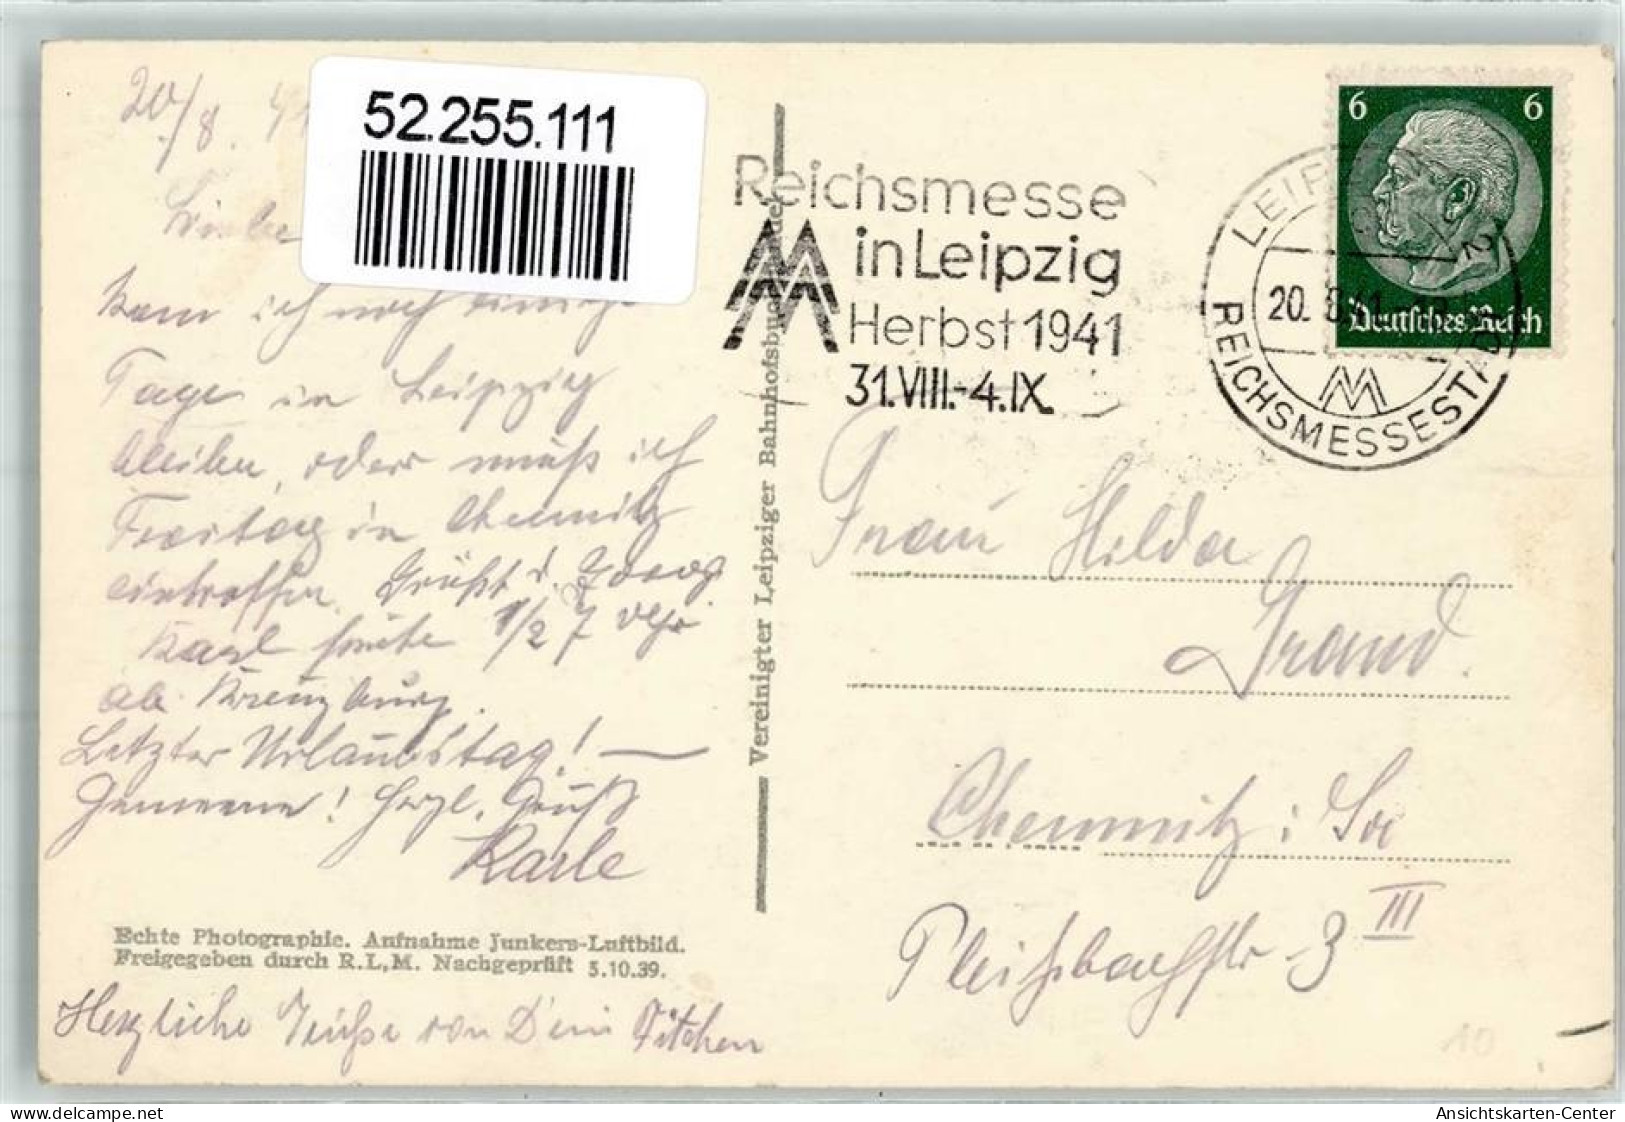 20/8. 41
52.255.111
Liebe
kann ich noch einige
Tage in Leipzig
bleiben, oder muß ich
Freitag in Chemnitz
eintreffen. Grüßt
Karl 1/2 7 Uhr
ab Kreuzburg.
Letzter Urlaubstag! —
Herzl. Gruß
Karle
Echte Photographie. Aufnahme Junkers-Luftbild.
Freigegeben durch R.L.M. Nachgeprüft 5.10.39.
Herzliche Grüße von Dein
Vereinigter Leipziger Bahnhofsbuchhandel
Reichsmesse
in Leipzig
Herbst 1941
31.VIII.-4.IX.
LEIPZIG
20. 8.41
REICHSMESSESTADT
6 6
Deutsches Reich
Frau Hilda
Brand.
Chemnitz i. Sa
Pleißbachstr 3 III
10
delcampe.net
Ansichtskarten-Center